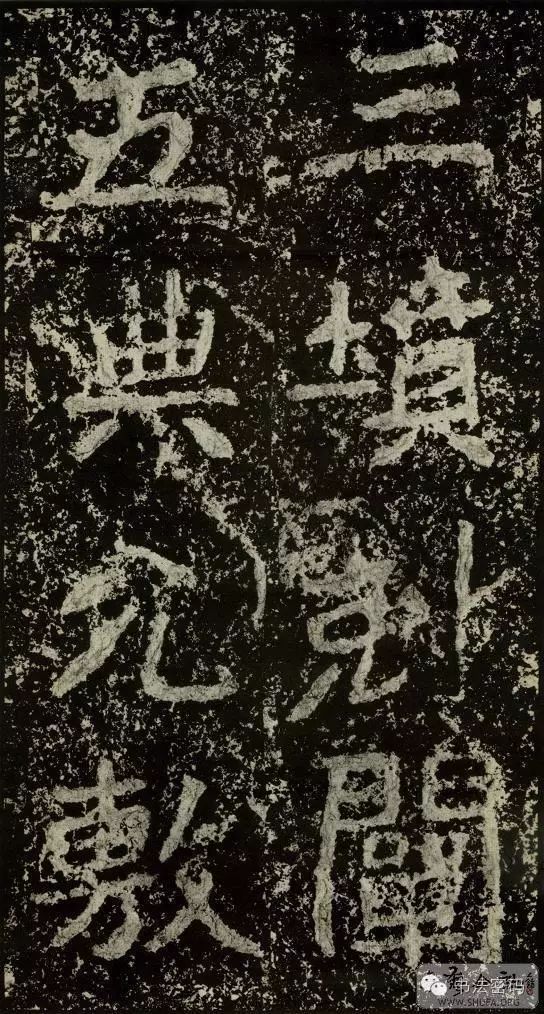 三墳剋闡
五典允敷
书法密码
WWW.SHUFA.ORG